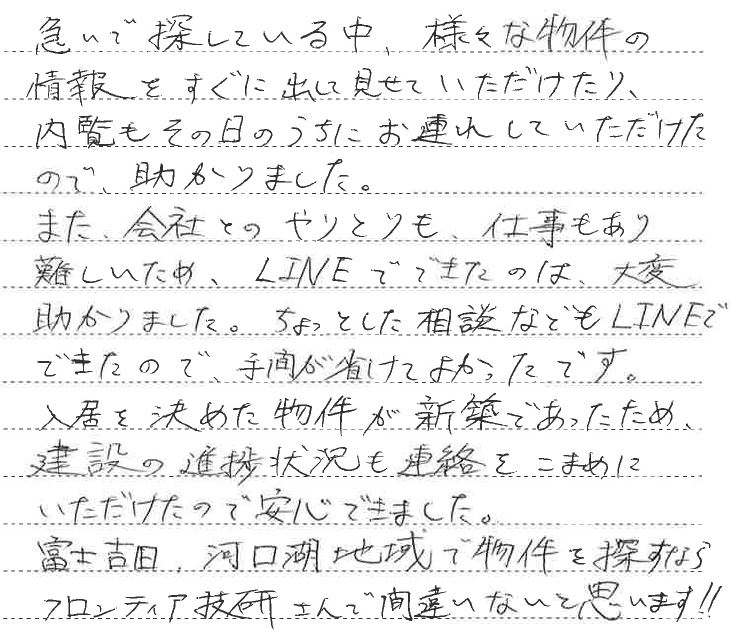 急いで探している中、様々な物件の
情報をすぐに出して見せていただけたり、
内覧もその日のうちにお連れしていただけた
ので、助かりました。
また、会社とのやりとりも、仕事もあり
難しいため、LINEでできたのは、大変
助かりました。ちょっとした相談などもLINEで
できたので、手間が省けてよかったです。
入居を決めた物件が新築であったため、
建設の進捗状況も連絡をこまめに
いただけたので安心できました。
富士吉田、河口湖地域で物件を探すなら
フロンティア技研さんで間違いないと思います!!